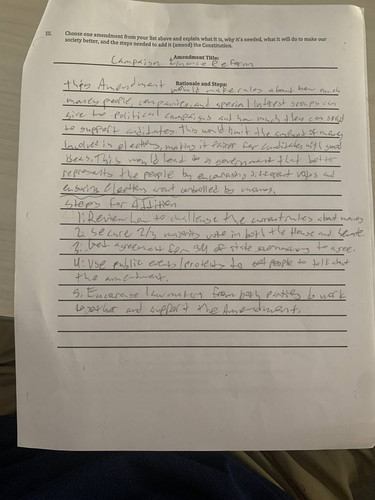 III. Choose one amendment from your list above and explain what it is, why it's needed, what it will do to make our
society better, and the steps needed to add it (amend) the Constitution.
Amendment Title:
Campaign Finance Reform
Rationale and Steps:
this Amendment would make rules about how much
money people, companies, and special interest groups can
give to political campaigns and how much they can spend
to support candidates. This would limit the amount of money
involved in elections, making it fairer for candidates with good
ideas. This would lead to a government that better
represents the people by encouraging different voices and
ensuring elections arent controlled by money.
Steps for Addition
1. Review law to challenge the current rules about money
2. Secure 2/3 majority vote in both the House and Senate
3. Get agreement from 3/4 of state to agree.
4. Use public events/protests to get people to talk about
the amendment.
5. Encourage lawmakers from both parties to work
together and support the Amendment.